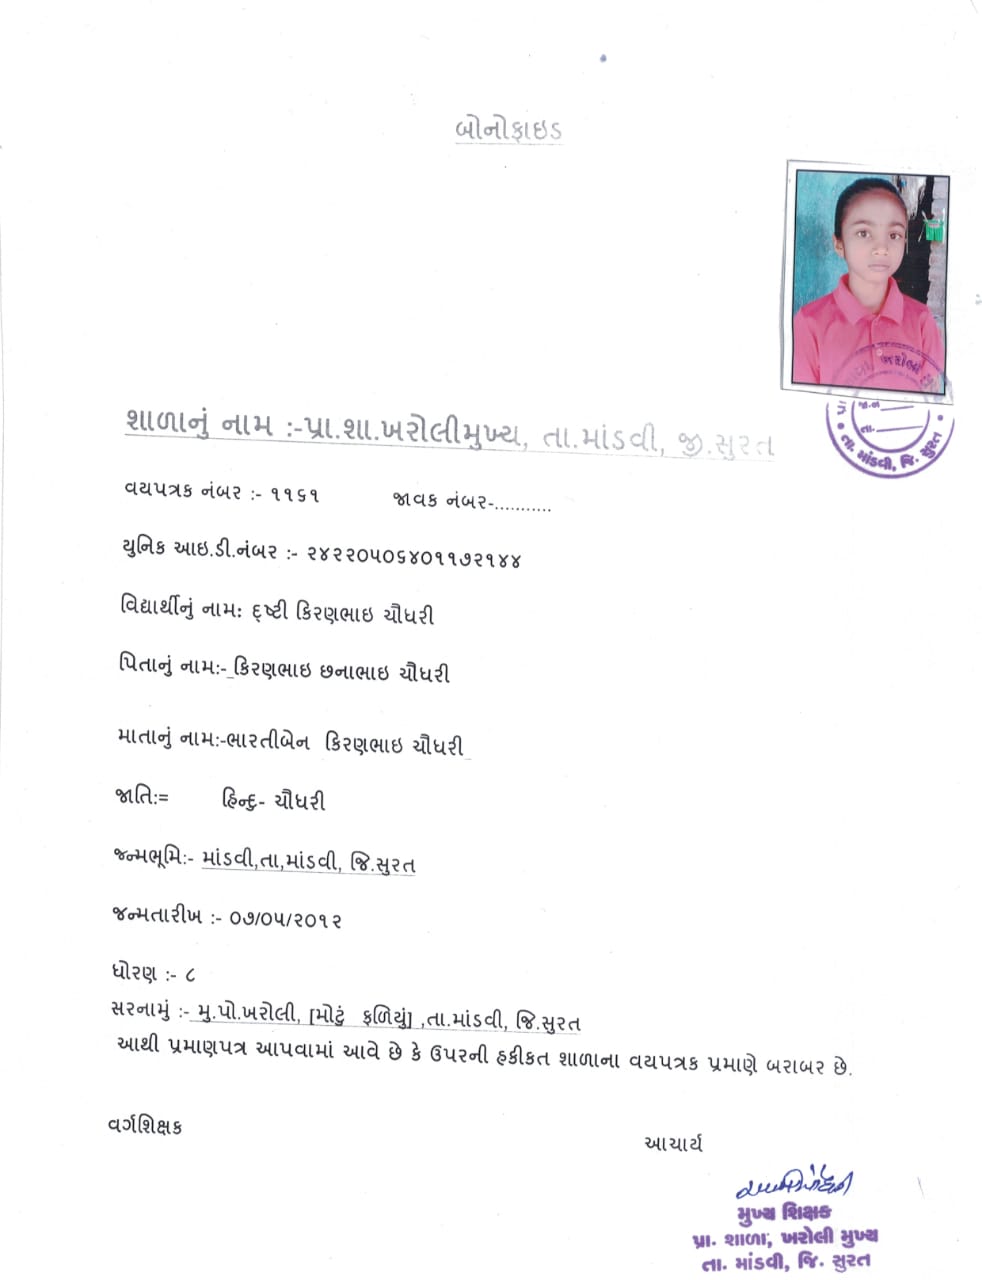 બોનોફાઇડ
શાળાનું નામ :-પ્રા.શા.ખરોલીમુખ્ય, તા.માંડવી, જી.સુરત
જા.ન
તા.
તા. માંડવી, જિ. સુરત
વયપત્રક નંબર :- ૧૧૬૧ જાવક નંબર-...........
યુનિક આઇ.ડી.નંબર :- ૨૪૨૨૦૫૦૬૪૦૧૧૭૨૧૪૪
વિદ્યાર્થીનું નામ: દ્ષ્ટી કિરણભાઇ ચૌધરી
પિતાનું નામ:- કિરણભાઇ છનાભાઇ ચૌધરી
માતાનું નામ:-ભારતીબેન કિરણભાઇ ચૌધરી
જાતિ:= હિન્દુ- ચૌધરી
જન્મભૂમિ:- માંડવી,તા,માંડવી, જિ.સુરત
જન્મતારીખ :- ૦૭/૦૫/૨૦૧૨
ધોરણ :- ૮
સરનામું :- મુ.પો.ખરોલી, [મોટું ફળિયું] ,તા.માંડવી, જિ.સુરત
આથી પ્રમાણપત્ર આપવામાં આવે છે કે ઉપરની હકીકત શાળાના વયપત્રક પ્રમાણે બરાબર છે.
વર્ગશિક્ષક
આચાર્ય
મુખ્ય શિક્ષક
પ્રા. શાળા, ખરોલી મુખ્ય
તા. માંડવી, જિ. સુરત